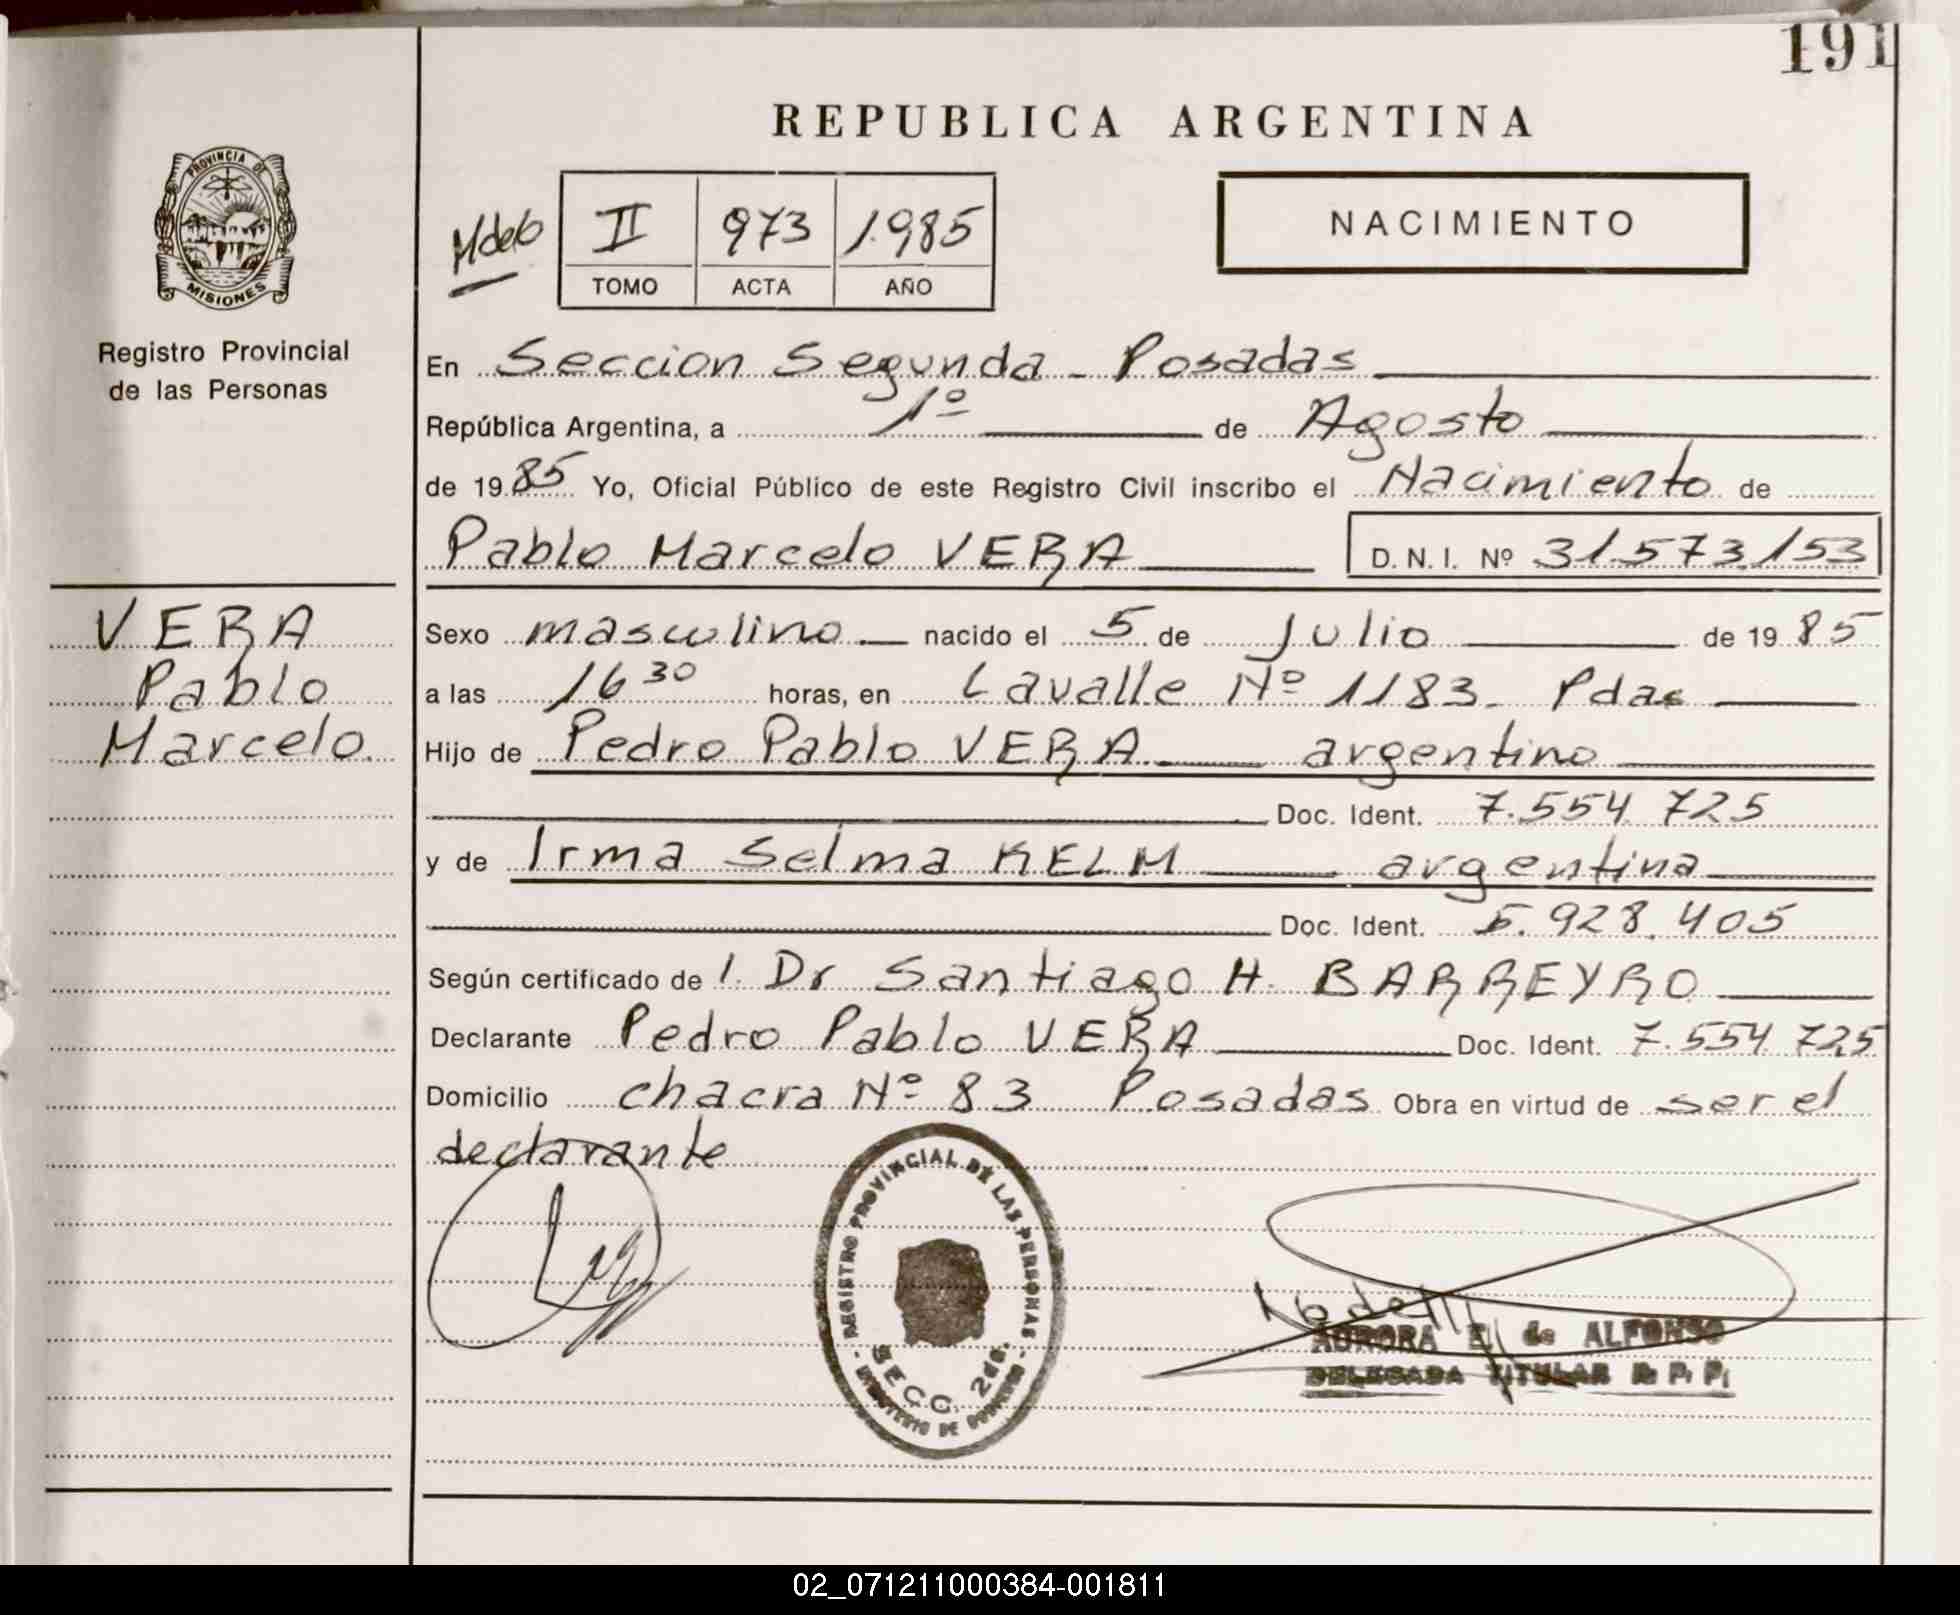 191
REPUBLICA ARGENTINA
PROVINCIA DE
MISIONES
Registro Provincial
de las Personas
II 973 1.985
TOMO ACTA AÑO
NACIMIENTO
En Seccion Segunda - Posadas
República Argentina, a 1º de Agosto
de 19 85 Yo, Oficial Público de este Registro Civil inscribo el Nacimiento de
Pablo Marcelo VERA D. N. I. Nº 31.573.153
VERA
Pablo
Marcelo
Sexo masculino nacido el 5 de Julio de 19 85
a las 16 30 horas, en Lavalle Nº 1183. Pdas
Hijo de Pedro Pablo VERA argentino
Doc. Ident. 7.554.725
y de Irma Selma KELM argentina
Doc. Ident. 5.928.405
Según certificado de 1. Dr Santiago H. BARREYRO
Declarante Pedro Pablo VERA Doc. Ident. 7.554.725
Domicilio chacra Nº 83 Posadas Obra en virtud de ser el
declarante
REGISTRO PROVINCIAL DE LAS PERSONAS
SECC. 2da.
MINISTERIO DE GOBIERNO
AURORA E. de ALFONSO
DELEGADA TITULAR R. P. P.
02_071211000384-001811